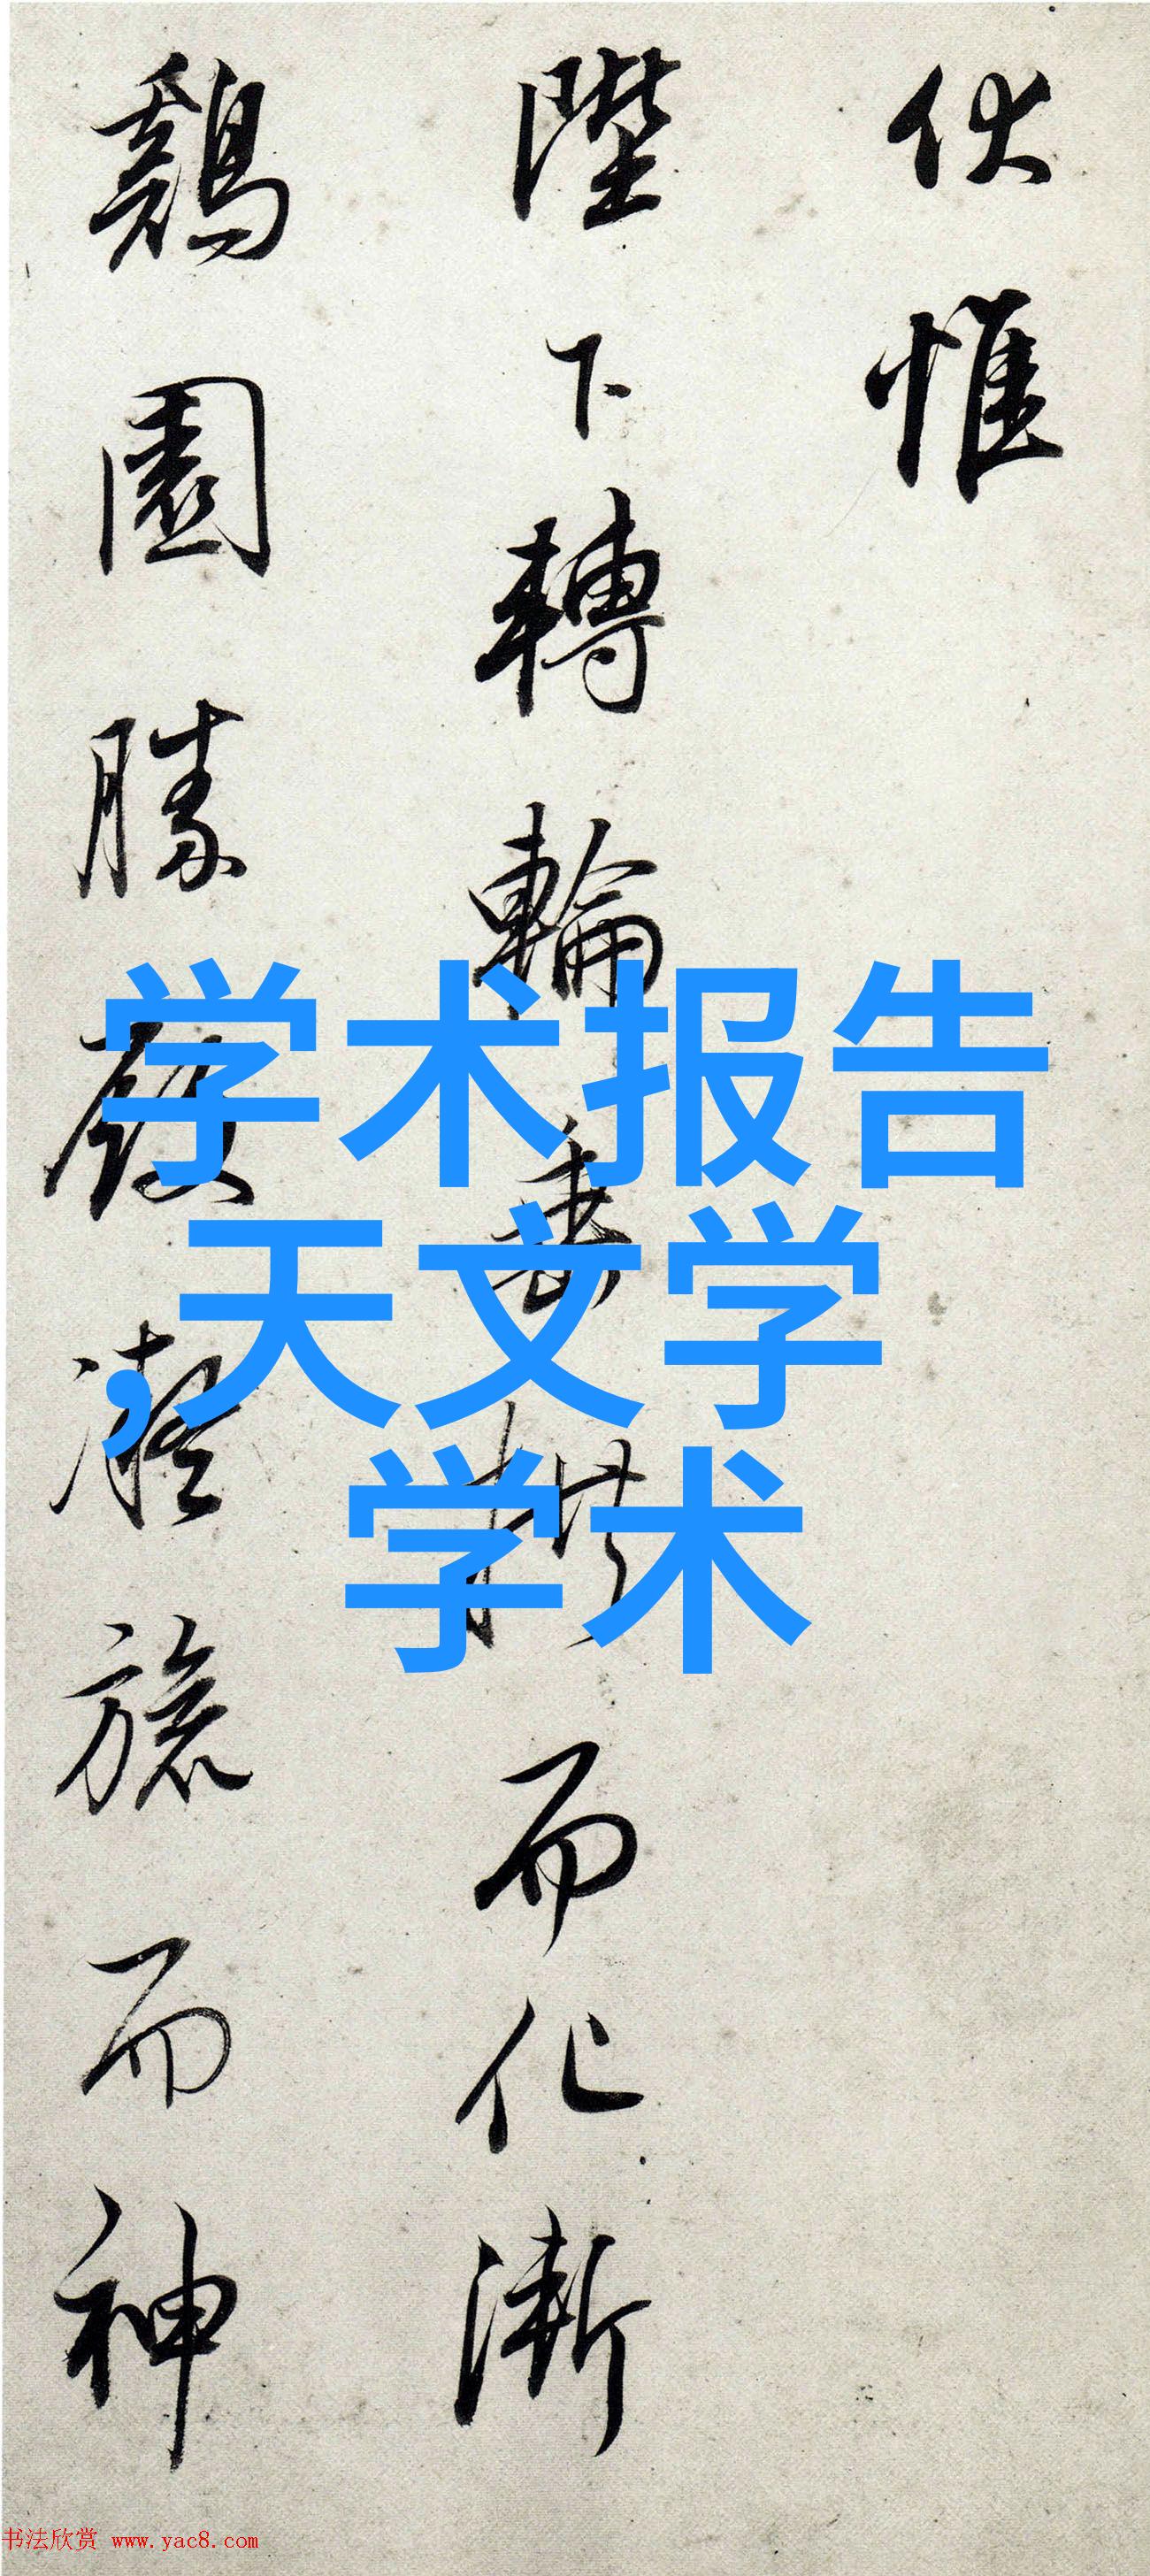 伏惟
陛下轉輪垂拱而化漸
鷄園勝殿凝旒而神
学术报告
,天文学
学术
书法欣赏 www.yac8.com